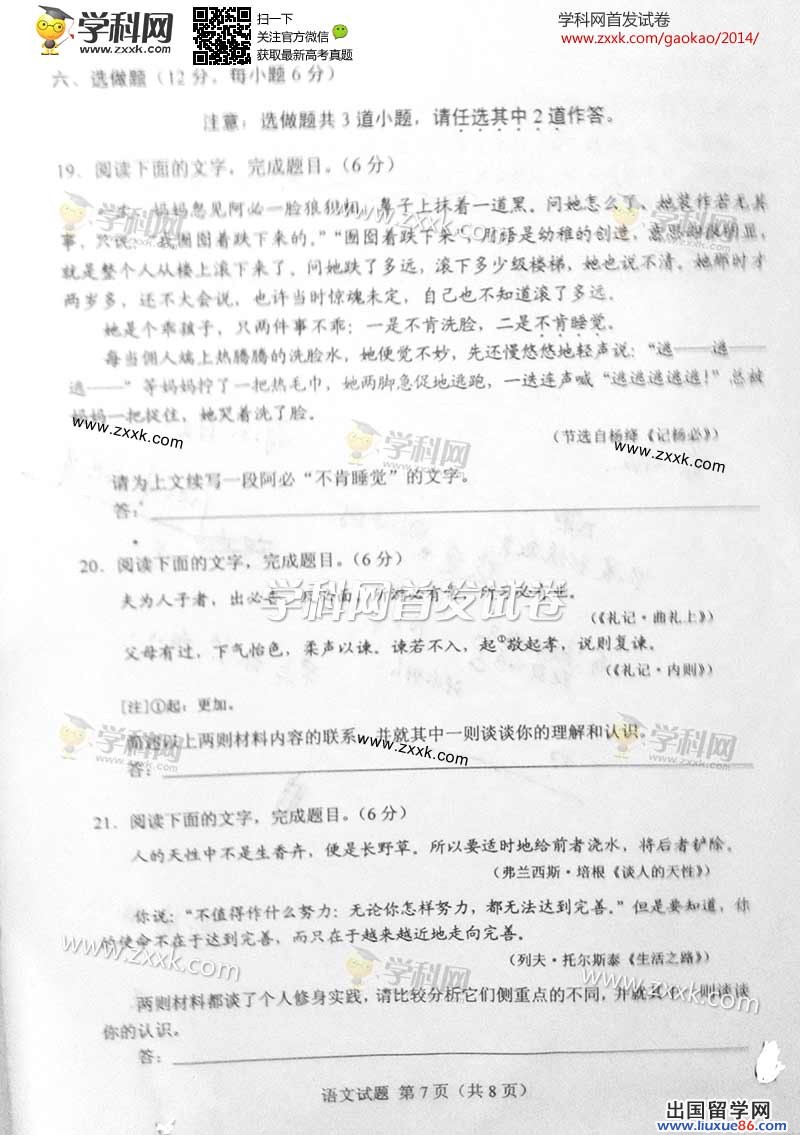 学科网
www.zxxk.com
扫一下
关注官方微信
获取最新高考真题
学科网首发试卷
www.zxxk.com/gaokao/2014/
六、选做题(12分,每小题6分)
注意:选做题共3道小题,请任选其中2道作答。
19.阅读下面的文字,完成题目。(6分)
妈妈忽见阿必一脸狼狈相,鼻子上抹着一道黑。问她怎么了,她装作若无其
事,只说:“我囫囵着跌下来的。”“囫囵着跌下来”,用语是幼稚的创造,意思却很明显,
就是整个人从楼上滚下来了。问她跌了多远,滚下多少级楼梯,她也说不清。她那时才
两岁多,还不大会说,也许当时惊魂未定,自己也不知道滚了多远。
她是个乖孩子,只两件事不乖:一是不肯洗脸,二是不肯睡觉。
每当佣人端上热腾腾的洗脸水,她便觉不妙,先还慢悠悠地轻声说:“逃——逃——
逃——”等妈妈拧了一把热毛巾,她两脚急促地逃跑,一迭连声喊“逃逃逃逃逃!”总被
妈妈一把捉住,她哭着洗了脸。
(节选自杨绛《记杨必》)
请为上文续写一段阿必“不肯睡觉”的文字。
答:
20.阅读下面的文字,完成题目。(6分)
夫为人子者,出必告,反必面,所游必有常,所习必有业。
(《礼记·曲礼上》)
父母有过,下气怡色,柔声以谏。谏若不入,起①敬起孝,说则复谏。
(《礼记·内则》)
[注]①起:更加。
简述以上两则材料内容的联系,并就其中一则谈谈你的理解和认识。
答:
21.阅读下面的文字,完成题目。(6分)
人的天性中不是生香卉,便是长野草。所以要适时地给前者浇水,将后者铲除。
(弗兰西斯·培根《谈人的天性》)
你说:“不值得作什么努力:无论你怎样努力,都无法达到完善。”但是要知道,你
的使命不在于达到完善,而只在于越来越近地走向完善。
(列夫·托尔斯泰《生活之路》)
两则材料都谈了个人修身实践,请比较分析它们侧重点的不同,并就其中一则谈谈
你的认识。
答:
语文试题 第7页(共8页)
出国留学网
www.liuxue86.com